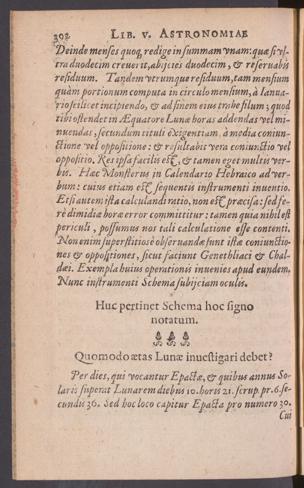 302 LIB. V. ASTRONOMIAE
Deinde menses quoq; redige in summam vnam: quæ si vl-
tra duodecim creuerit, abijcies duodecim, & reseruabis
residuum. Tandem vtrumque residuum, tam mensium
quàm portionum computa in circulo mensium, à Ianua-
rio scilicet incipiendo, & ad finem eius trahe filum; quod
tibi ostendet in Æquatore Lunæ horas addendas vel mi-
nuendas, secundum tituli exigentiam, à media coniun-
ctione vel oppositione: & resultabit vera coniunctio vel
oppositio. Res ipsa facilis est, & tamen eget multis ver-
bis. Hæc Monsterus in Calendario Hebraico ad ver-
bum: cuius etiam est sequentis instrumenti inuentio.
Etsi autem ista calculandi ratio, non est præcisa: sed fe-
rè dimidiæ horæ error committitur: tamen quia nihil est
periculi, possumus nos tali calculatione esse contenti.
Non enim superstitiosè obseruandæ sunt istæ coniunctio-
nes & oppositiones, sicut faciunt Genethliaci & Chal-
dæi. Exempla huius operationis inuenies apud eundem.
Nunc instrumenti Schema subijciam oculis.
Huc pertinet Schema hoc signo
notatum.
Quomodo ætas Lunæ inuestigari debet?
Per dies, qui vocantur Epactæ, & quibus annus So-
laris superat Lunarem diebus 10. horis 21. scrup. pr. 6. se-
cundis 36. Sed hoc loco capitur Epacta pro numero 30.
Cui